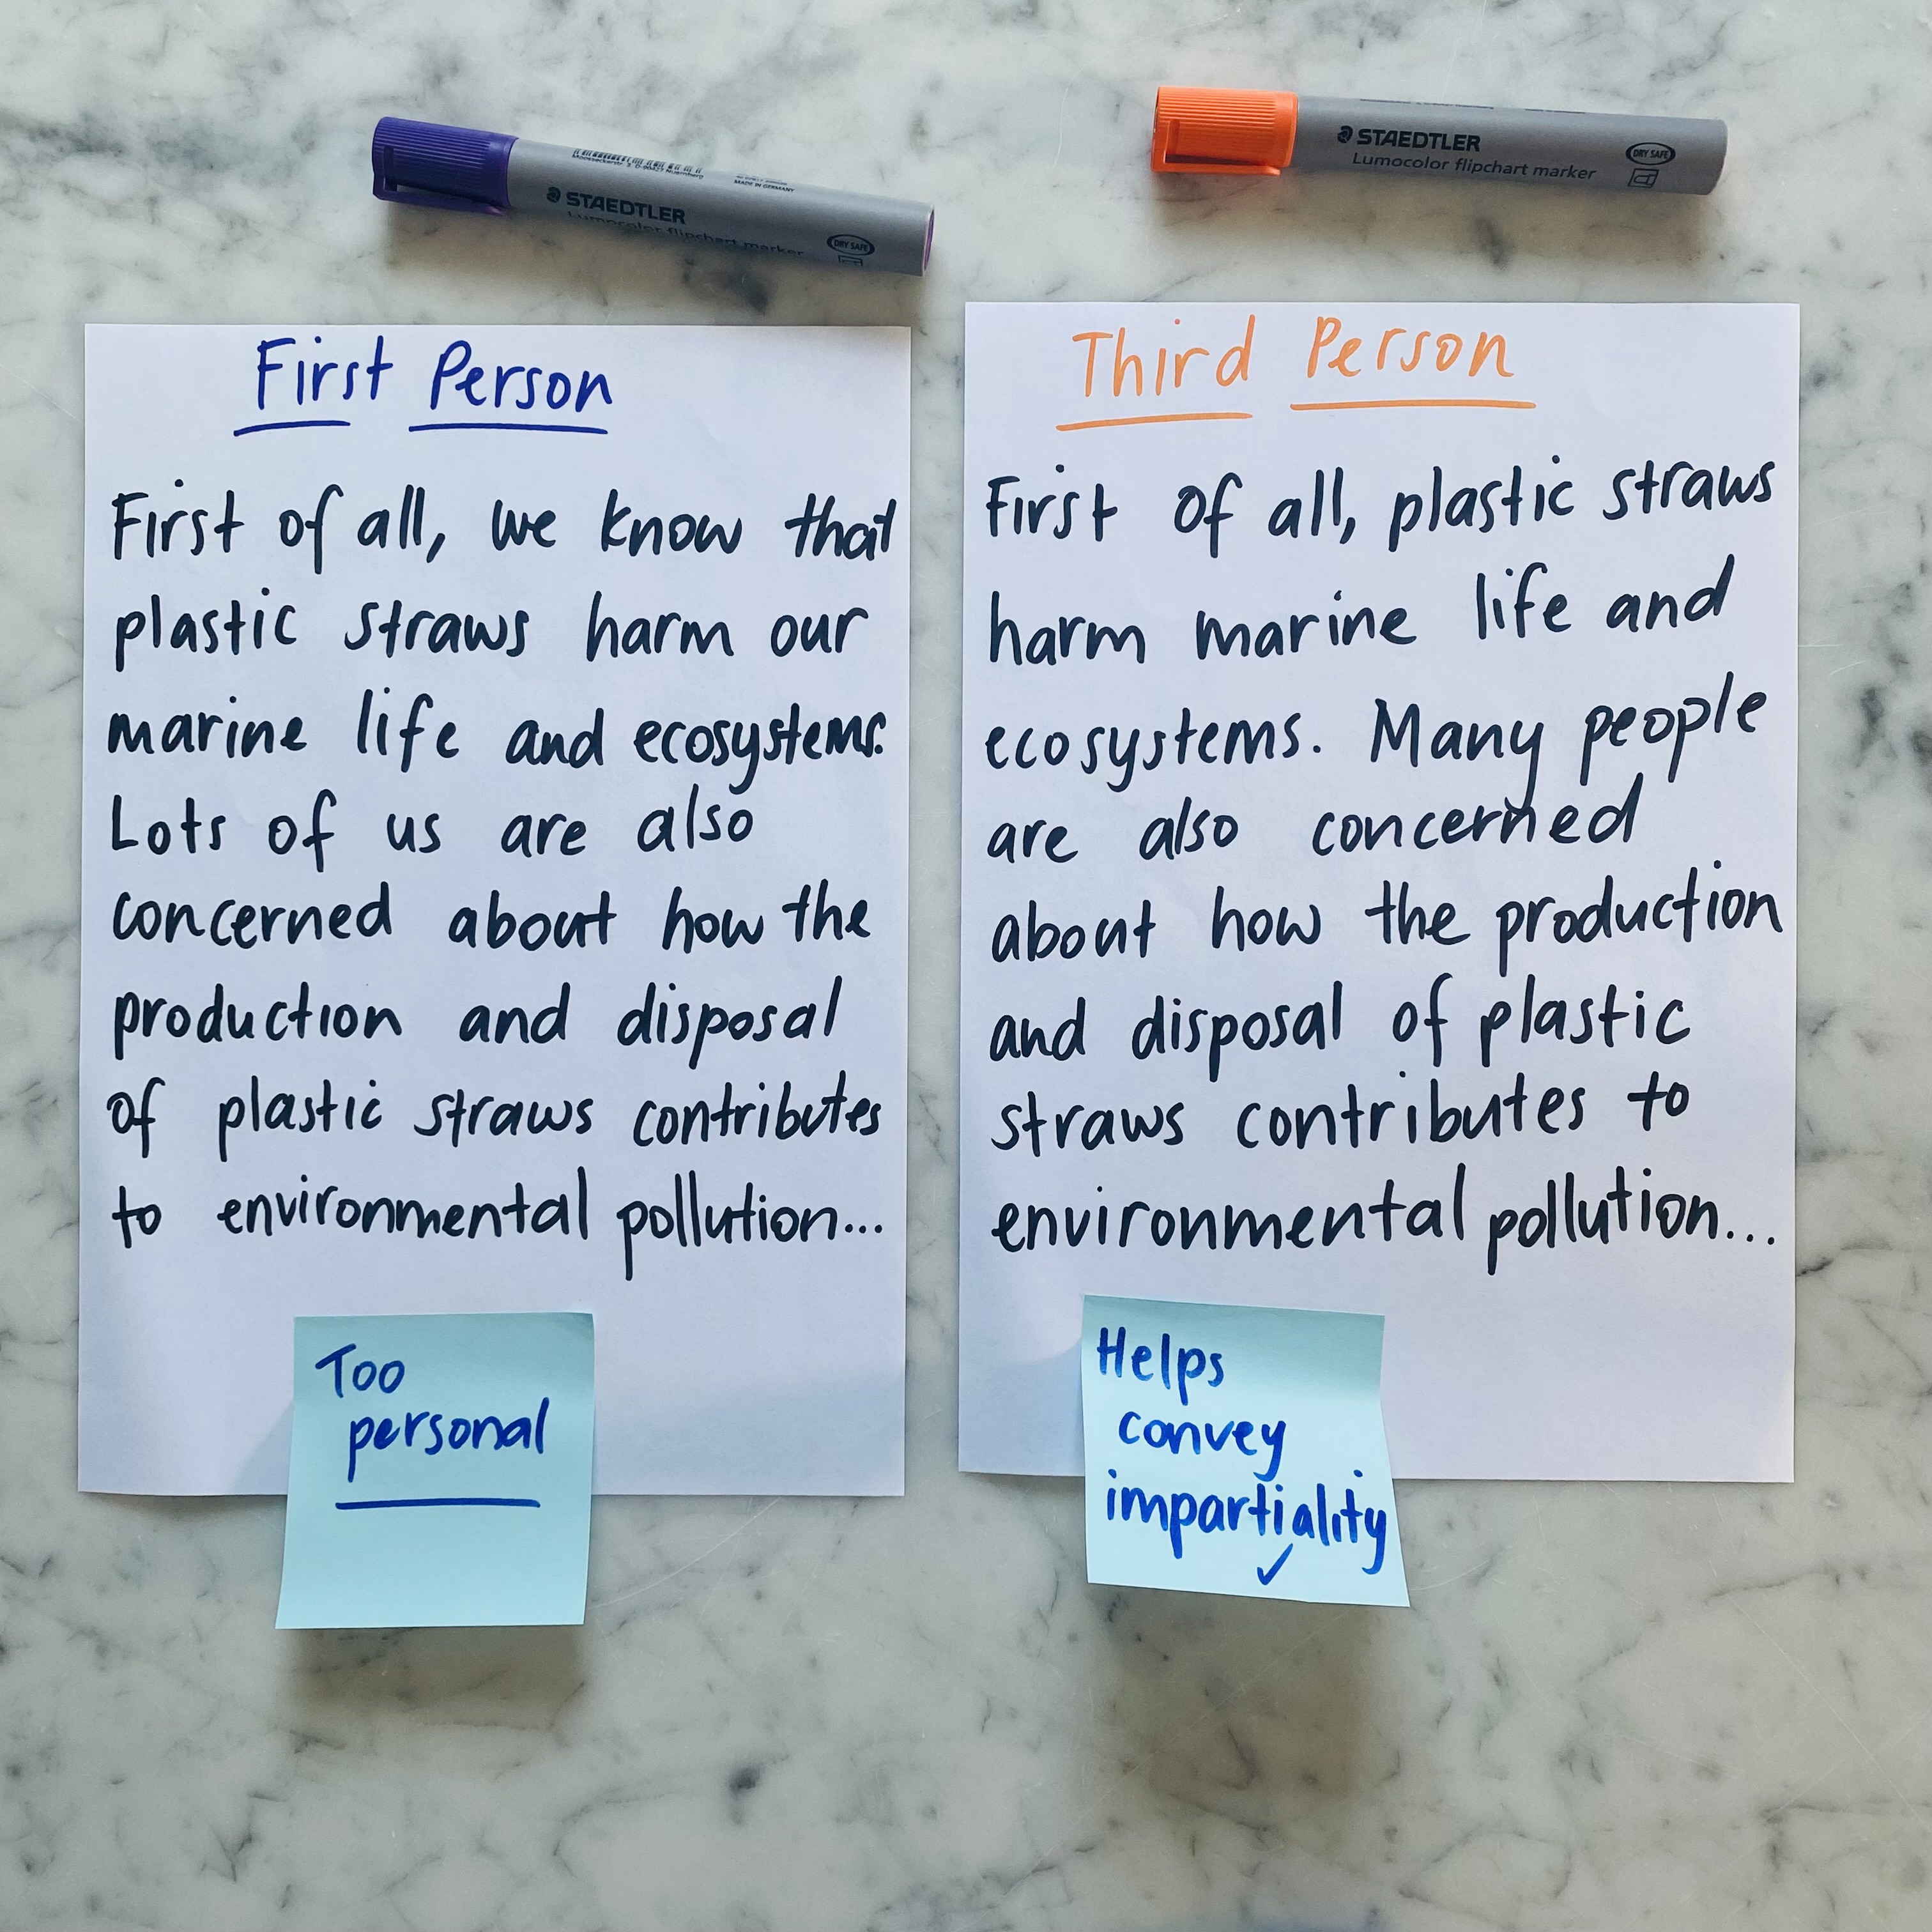 STAEDTLER
Lumocolor flipchart marker
DRY SAFE
MADE IN GERMANY
STAEDTLER
Lumocolor flipchart marker
DRY SAFE
First Person
First of all, we know that
plastic straws harm our
marine life and ecosystems.
Lots of us are also
concerned about how the
production and disposal
of plastic straws contributes
to environmental pollution...
Too
personal
Third Person
First of all, plastic straws
harm marine life and
ecosystems. Many people
are also concerned
about how the production
and disposal of plastic
straws contributes to
environmental pollution...
Helps
convey
impartiality
✓